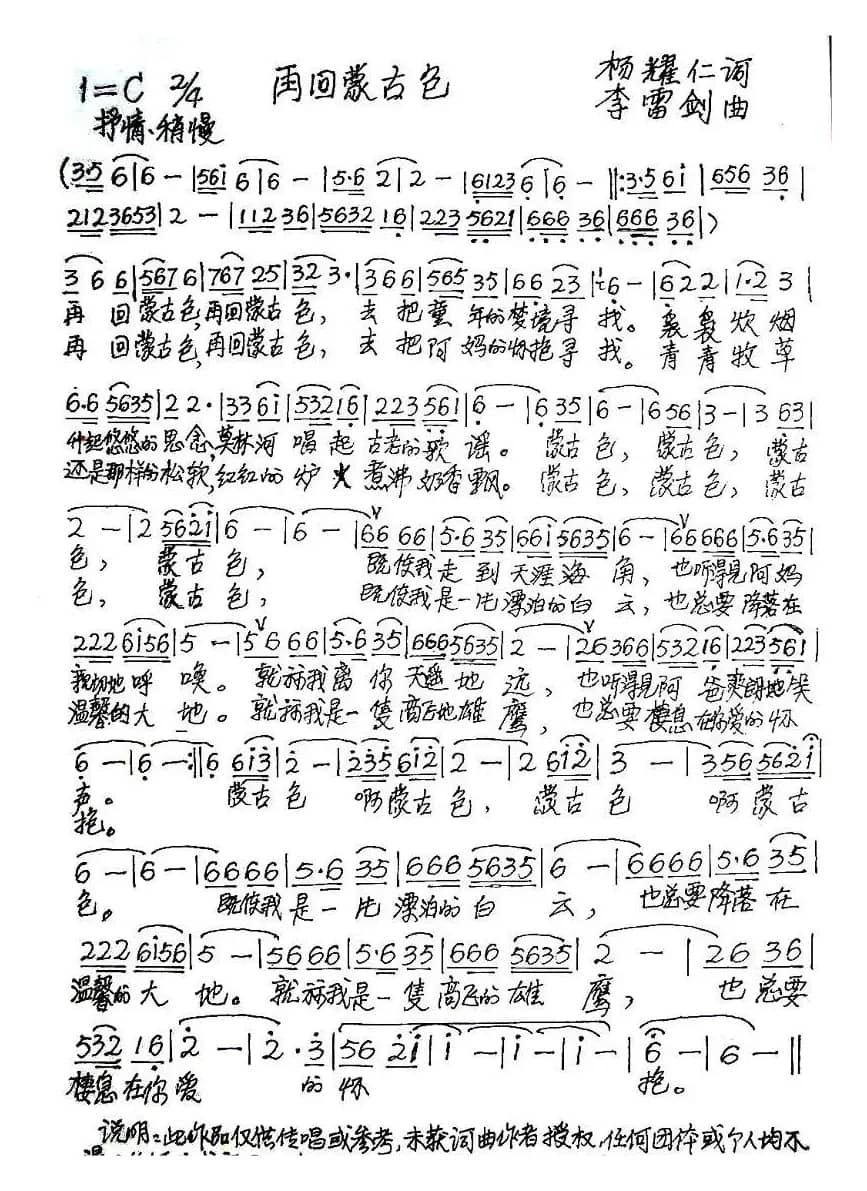 再回蒙古包
杨耀仁词
1=C 2/4
李雷剑曲
抒情、稍慢
(3·5 6|6 - |56i 6|6 - |5·6 2|2 - |6123 6|6 - |:3·5 6i|656 36|
2123653|2 - |112 36|5632 16|223 5621|666 36|666 36|)
3 6 6|567 6|767 25|32 3·|366|565 35|66 23|6 - |622|1·2 3|
再 回蒙古包,再回蒙古包, 去把童年的梦境寻找。袅袅炊烟
再 回蒙古包,再回蒙古包, 去把阿妈的怀抱寻找。青青牧草
6·6 5635|22·|33 6i|532 16|223 561|6 - |6 35|6 - |6 56|3 - |3 63|
升起悠悠的思念,莫林河唱起古老的歌谣。蒙古包, 蒙古包, 蒙古
还是那样的松软,红红的炉火煮沸奶香飘。蒙古包, 蒙古包, 蒙古
2 - |2 562i|6 - |6 - |66 66|5·6 35|66i 5635|6 - |66666|5·6 35|
包, 蒙古包, 既使我走到天涯海角, 也听得见阿妈
包, 蒙古包, 既使我是一片漂泊的白云,也总要降落在
222 6i56|5 - |56 66|5·6 35|666 5635|2 - |26366|532 16|223 561|
亲切地呼唤。就算我离你天遥地远, 也听得见阿爸爽朗地笑
温馨的大地。就算我是一隻高飞地雄鹰, 也总要棲息在你爱的怀
6 - |6 - :|6 6i3|2 - |235 6i2|2 - |2 6i2|3 - |356 562i|
声。 蒙古包 啊蒙古包, 蒙古包 啊蒙古
抱。
6 - |6 - |6666|5·6 35|666 5635|6 - |6666|5·6 35|
包。 既使我是一片漂泊的白云, 也总要降落在
222 6i56|5 - |5666|5·6 35|666 5635|2 - |26 36|
温馨的大地。就算我是一隻高飞的雄鹰, 也总要
532 16|2 - |2·3|56 2i|i - |i - |i - |6 - |6 - ‖
棲息在你爱 的怀 抱。
说明:此作品仅供传唱或参考,未获词曲作者授权,任何团体或个人均不